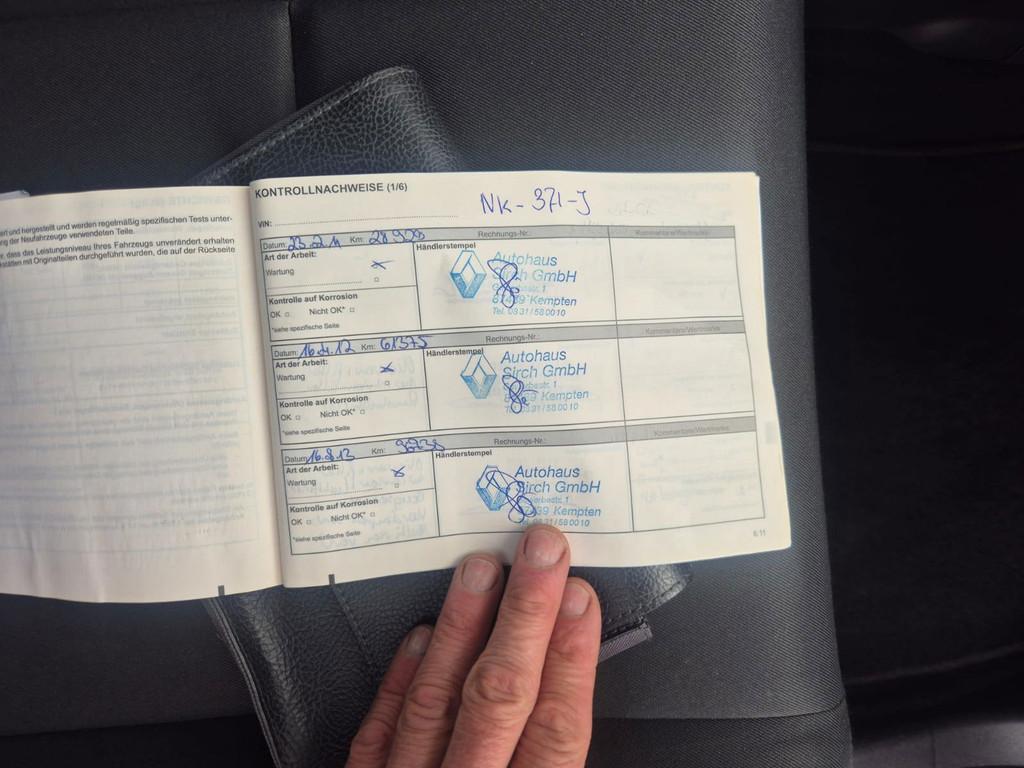 ert und hergestellt und werden regelmäßig spezifischen Tests unter-
ng der Neufahrzeuge verwendeten Teile.
r, dass das Leistungsniveau Ihres Fahrzeugs unverändert erhalten
kstätten mit Originalteilen durchgeführt wurden, die auf der Rückseite
KONTROLLNACHWEISE (1/6)
NK-371-J
VIN:
Datum: 23.2.11 Km: Rechnungs-Nr.: Kommentare/Wertmarke
Art der Arbeit:
Händlerstempel
Wartung
Autohaus
Sirch GmbH
87439 Kempten
Tel. 08 31 / 58 00 10
Kontrolle auf Korrosion
OK Nicht OK*
*siehe spezifische Seite
Datum: Km: 61575 Rechnungs-Nr.: Kommentare/Wertmarke
Art der Arbeit:
Händlerstempel
Wartung
Autohaus
Sirch GmbH
Kempten
Kontrolle auf Korrosion
OK Nicht OK*
*siehe spezifische Seite
Datum: 16.8.13 Km: Rechnungs-Nr.: Kommentare/Wertmarke
Art der Arbeit:
Händlerstempel
Wartung
Autohaus
Sirch GmbH
Kempten
Kontrolle auf Korrosion
OK Nicht OK*
*siehe spezifische Seite
6.11